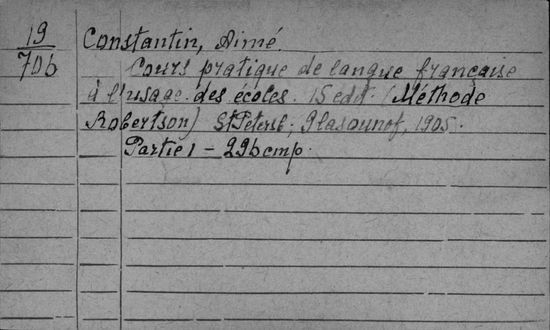 19
706
Constantin, Aimé.
Cours pratique de langue française
à l'usage des écoles. 15 edit. (Méthode
Robertson) St Petersb; Glasounof, 1905.
Partie 1 - 296 cmp.